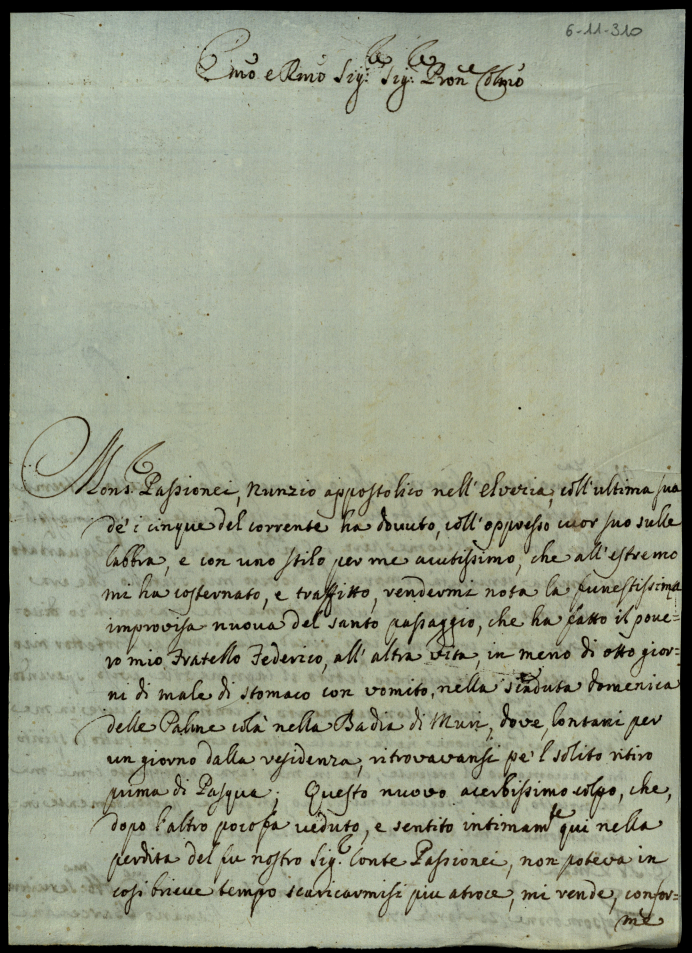 6-11-310
Emo e Rmo Sig.re Sig.re Pron.e Colmo
Mons.re Passionei, Nunzio appostolico nell'elvezia, coll'ultima sua
de' i cinque del corrente ha dovuto, coll'oppresso cuor suo sulle
labbra, e con uno stilo per me acutissimo, che all'estremo
mi ha costernato, e traffitto, rendermi nota la funestissima
improvisa nuova del santo passaggio, che ha fatto il pove=
ro mio Fratello Federico, all'altra vita, in meno di otto gior=
ni di male di stomaco con vomito, nella scaduta domenica
delle Palme colà nella Badia di Muri, dove, lontani per
un giorno dalla residenza, ritrovavansi pe'l solito ritiro
prima di Pasqua; Questo nuovo acerbissimo colpo, che,
dopo l'altro poco fa veduto, e sentito intimam.te qui nella
perdita del fu nostro Sig.re Conte Passionei, non poteva in
cosi brieve tempo scaricarmisi piu atroce, mi rende, confor=
me